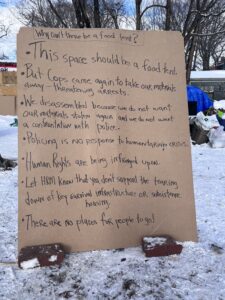 Why can't there be a food tent?
• This space should be a food tent
• But Cops came again to take our materials
away - threatening arrests.
• We disassembled because we do not want
our materials stolen again and we do not want
a confrontation with police.
• Policing is no response to humanitarian crisis.
• Human Rights are being infringed upon.
• Let HRM Know that you don't support the tearing
down of key survival infrastructure or subsistence
housing.
• There are no places for people to go!